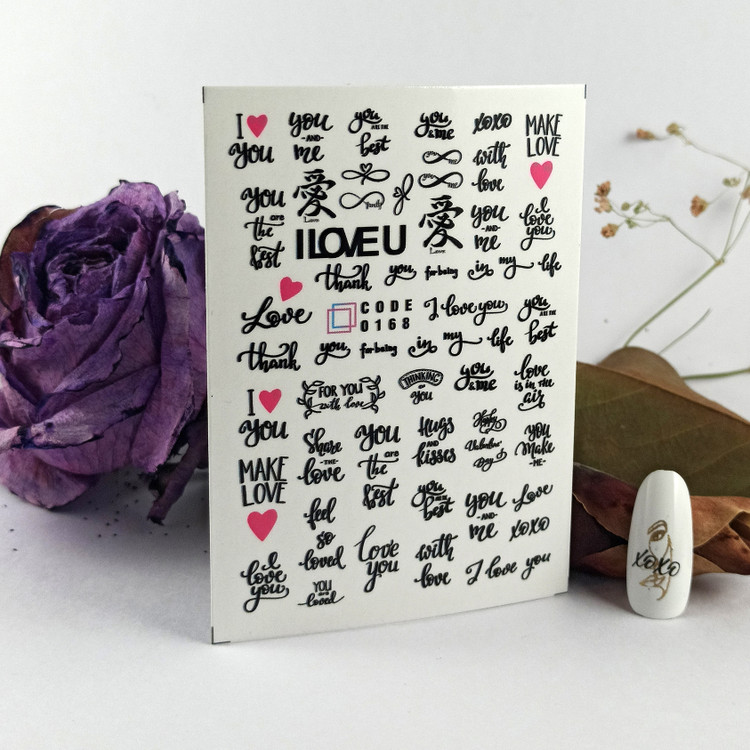 I
you
you
-AND-
me
you
ARE THE
best
you
& me
xoxo
MAKE
LOVE
with
love
you
are
the
best
愛
Love
family
愛
Love
you
-AND-
me
I
love
you
I LOVE U
thank you for being in my life
Love
CODE
0168
I love you
you
ARE THE
best
thank you for being in my life
I
you
FOR YOU
with love
THINKING
OF
YOU
you
& me
love
is in the
air
MAKE
LOVE
Share
-THE-
love
you
are
the
best
Hugs
AND
kisses
Happy
Valentines
Day
you
make
-ME-
feel
so
loved
you
best
you
-AND-
me
Love
xoxo
I
love
you
YOU
ARE
loved
love
you
with
love
I love you
xoxo